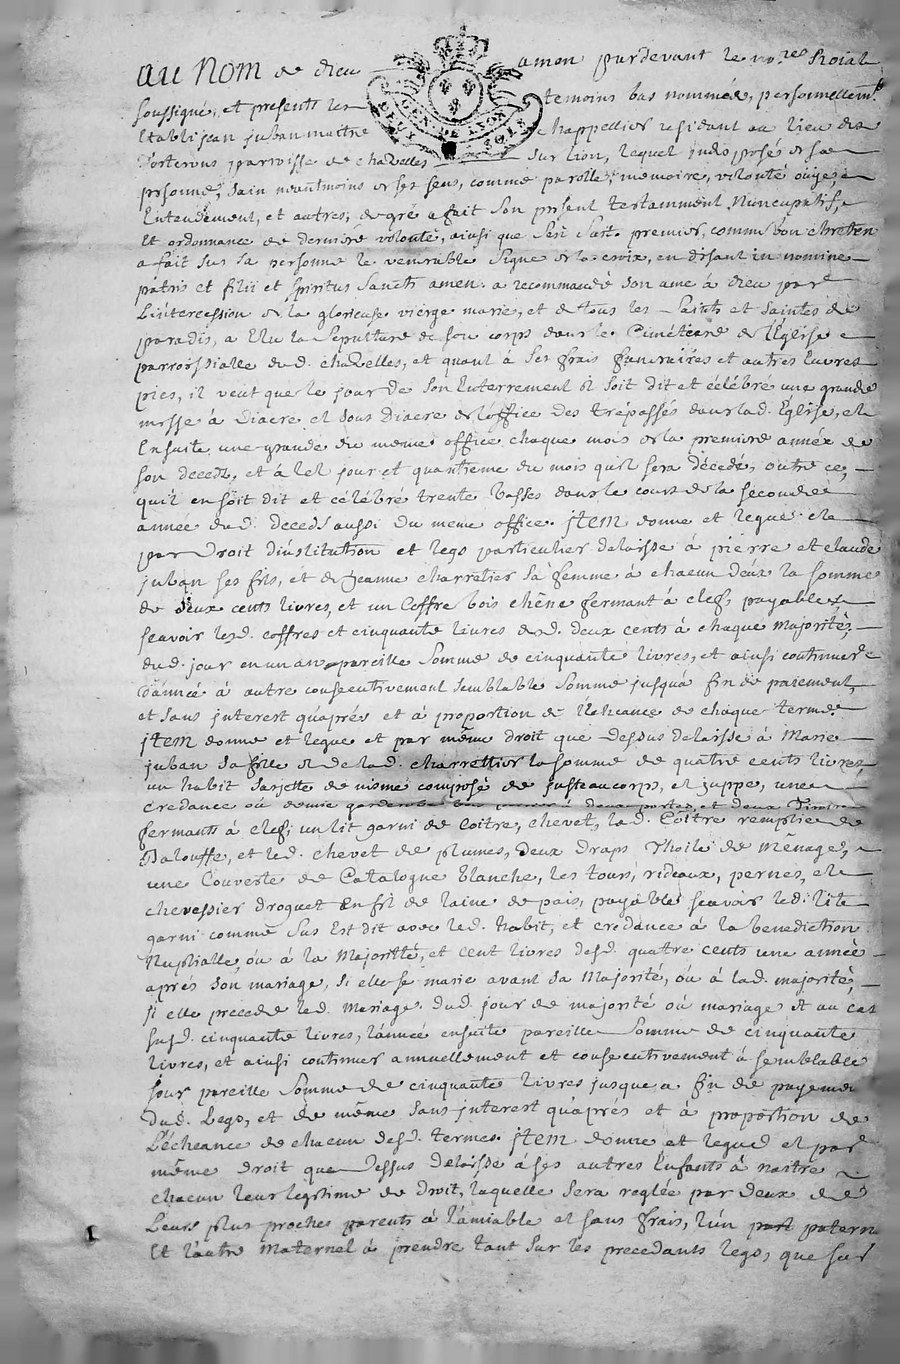 au nom de dieu amen pardevant le no.re Roial
soussigné, et presents les temoins bas nommés, personnellem.t
Etabli jean juban maitre chappellier residant au lieu des
parroisse de chaVelles sur lion, lequel indisposés de sa
personne, sain neantmoins de ses sens, comme parolle, memoire, volonté ouÿe,
Entendement, et autres, de gré a fait son present testamment Nuncupatif,
Et ordonnance de derniere volonté, ainsi que sen suit. premier, comme bon chretien
a fait sur sa personne le venerable signe de la croix, en disant in nomine
patris et filii et spiritus sancti amen. a recommandé son ame à dieu par
L'intercession de la glorieuse vierge marie, et de tous les saints et saintes de
paradis, a Elu la sepulture de son corps dans le Cimétiere de l'Eglise
parroissialle dud. chaVelles, et quant à ses frais funeraires et autres Euvres
pies, il veut que le jour de son Enterrement il soit dit et célébré une grande
messe à diacre et sous diacre de l'office des trépassés dans lad. Eglise, et
Ensuite une grande du meme office chaque mois de la premiere année de
son deceds, et à tel jour et quantieme du mois qu'il sera décedé, outre ce,
qu'il en soit dit et célébré trente basses dans le cours de la seconde
année dud. deceds aussi du meme office. jtem donne et legue et
par droit d'institution et legs particulier delaisse à pierre et claude
juban ses fils, et de jeanne charretier sa femme à chacun d'eux la somme
de deux cents livres, et un Coffre bois chêne fermant à clef, payables
scavoir lesd. coffres et cinquante livres desd. deux cents à chaque majorité,
dud. jour en un an pareille somme de cinquante livres, et ainsi continuer
d'année à autre consecutivement semblable somme jusqu'à fin de paiement,
et sans interest qu'aprés et à proportion de l'Echeance de chaque terme.
jtem donne et legue et par même droit que dessus delaisse à Marie
juban sa fille et de lad. charrettier la somme de quatre cents livres,
un habit sarjette de nisme composé de justeaucorps, et juppe, une
credance ou demie garderobe bois à deux portes et deux Tiroirs
fermants à clef, un lit garni de Coitre, chevet, lad. Coitre remplie de
Balouffe, et led. chevet de plumes, deux draps Thoile de Ménage,
une Couverte de Catalogne blanche, les tours, rideaux, pernes, et
chevessier droguet En fil de laine de païs, payables scavoir led. lit
garni comme sus est dit avec led. habit, et crédance à la benediction
Nuptialle, ou à la Majorité, et cent livres desd. quatre cents une année
aprés son mariage, si elle se marie avant sa Majorité, ou à lad. majorité,
si elle precede led. Mariage. dud. jour de majorité ou mariage et au cas
susd. cinquante livres, l'année ensuite pareille somme de cinquante
livres, et ainsi continuer annuellement et consecutivement à semblable
jour pareille somme de cinquante livres jusque a fin de payement
dud. Legs, et de même sans interest qu'aprés et à proportion de
L'écheance de chacun desd. termes. jtem donne et legue et par
même droit que dessus delaisse à ses autres Enfants à naitre
chacun leur legitime de droit, laquelle sera reglée par deux de
Leurs plus proches parents à l'amiable et sans frais, l'un paternel
Et l'autre Maternel à prendre tant sur les precedants legs, que sur
GEN DE LYON
DEUX SOLS